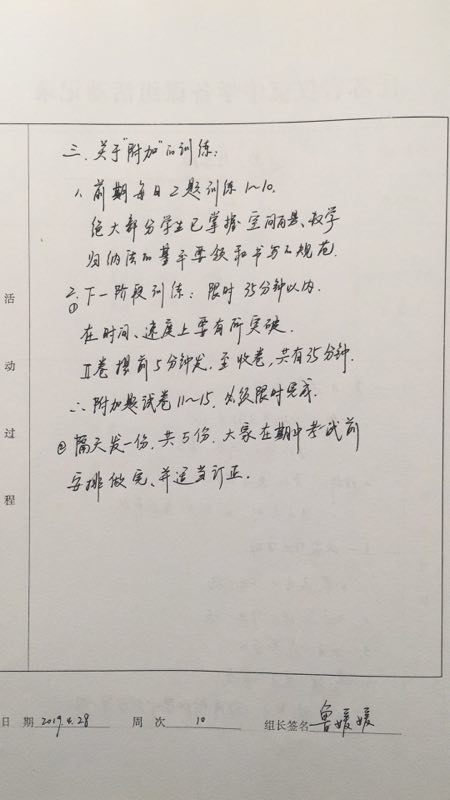 三、关于"附加"的训练：
1、前期每日2题训练1~10.
绝大部分学生已掌握空间向量、数学
归纳法的基本要领和书写的规范.
2、下一阶段训练：限时35分钟以内.
①
在时间、速度上要有所突破.
Ⅱ卷提前5分钟发，至收卷，共有35分钟.
∴附加题试卷11~15，必须限时完成.
②隔天发一份，共5份，大家在期中考试前
安排做完、并适当订正.
活
动
过
程
日 期 2019.4.28 周 次 10 组长签名 鲁媛媛